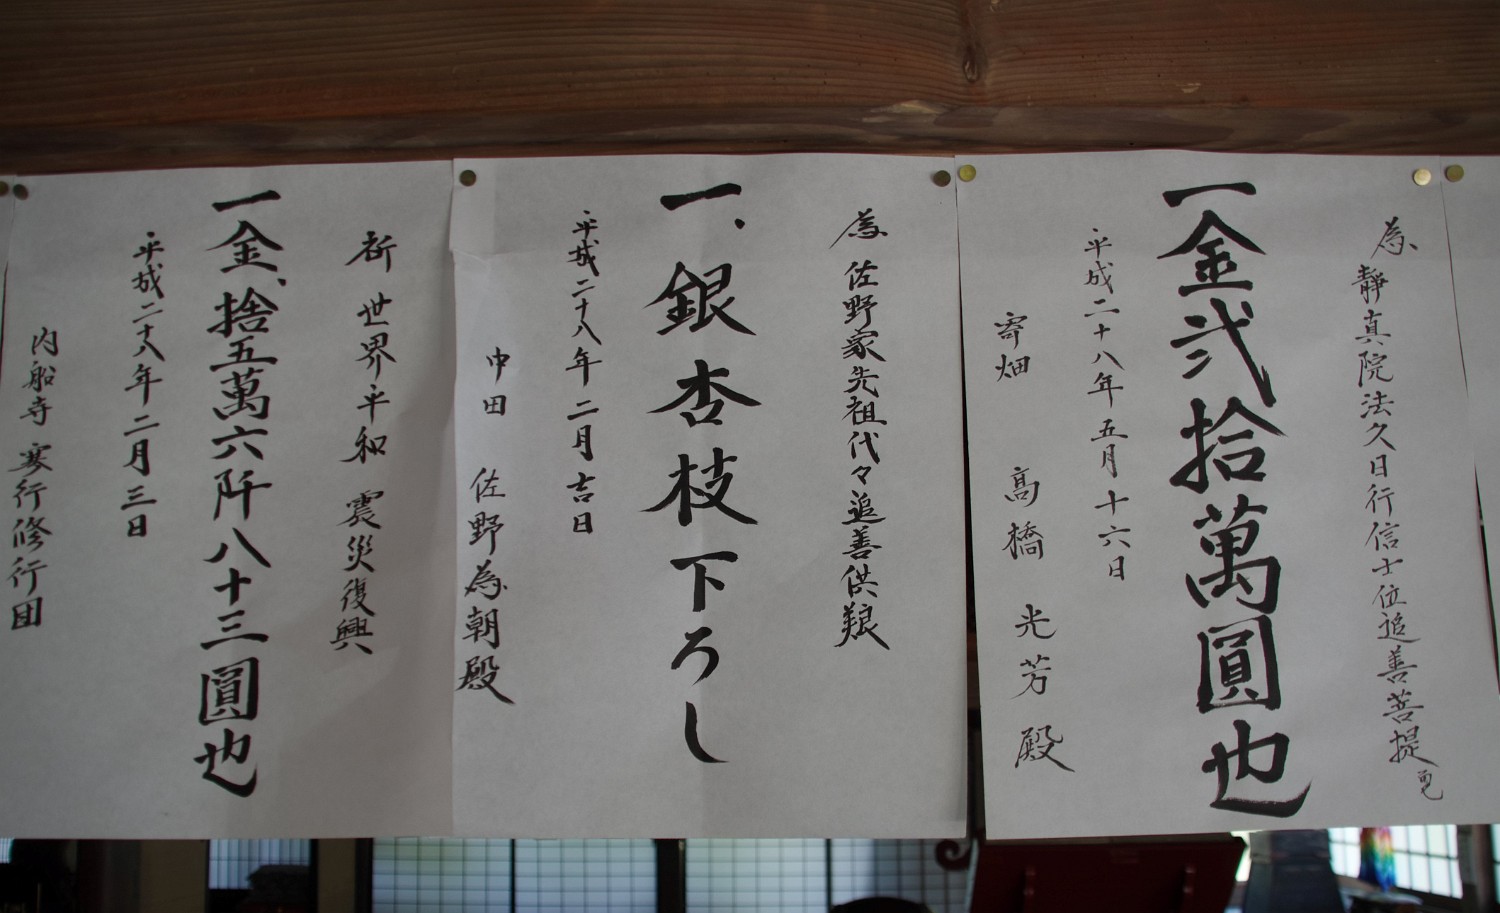 為 靜真院法久日行信士位追善菩提
一金弐拾萬圓也
平成二十八年五月十六日
寄畑 高橋 光芳 殿
為 佐野家先祖代々追善供養
一、銀杏枝下ろし
平成二十八年 二月 吉日
中田 佐野為朝殿
祈 世界平和 震災復興
一金、捨五萬六阡八十三圓也
平成二十八年二月三日
内船寺 寒行修行団